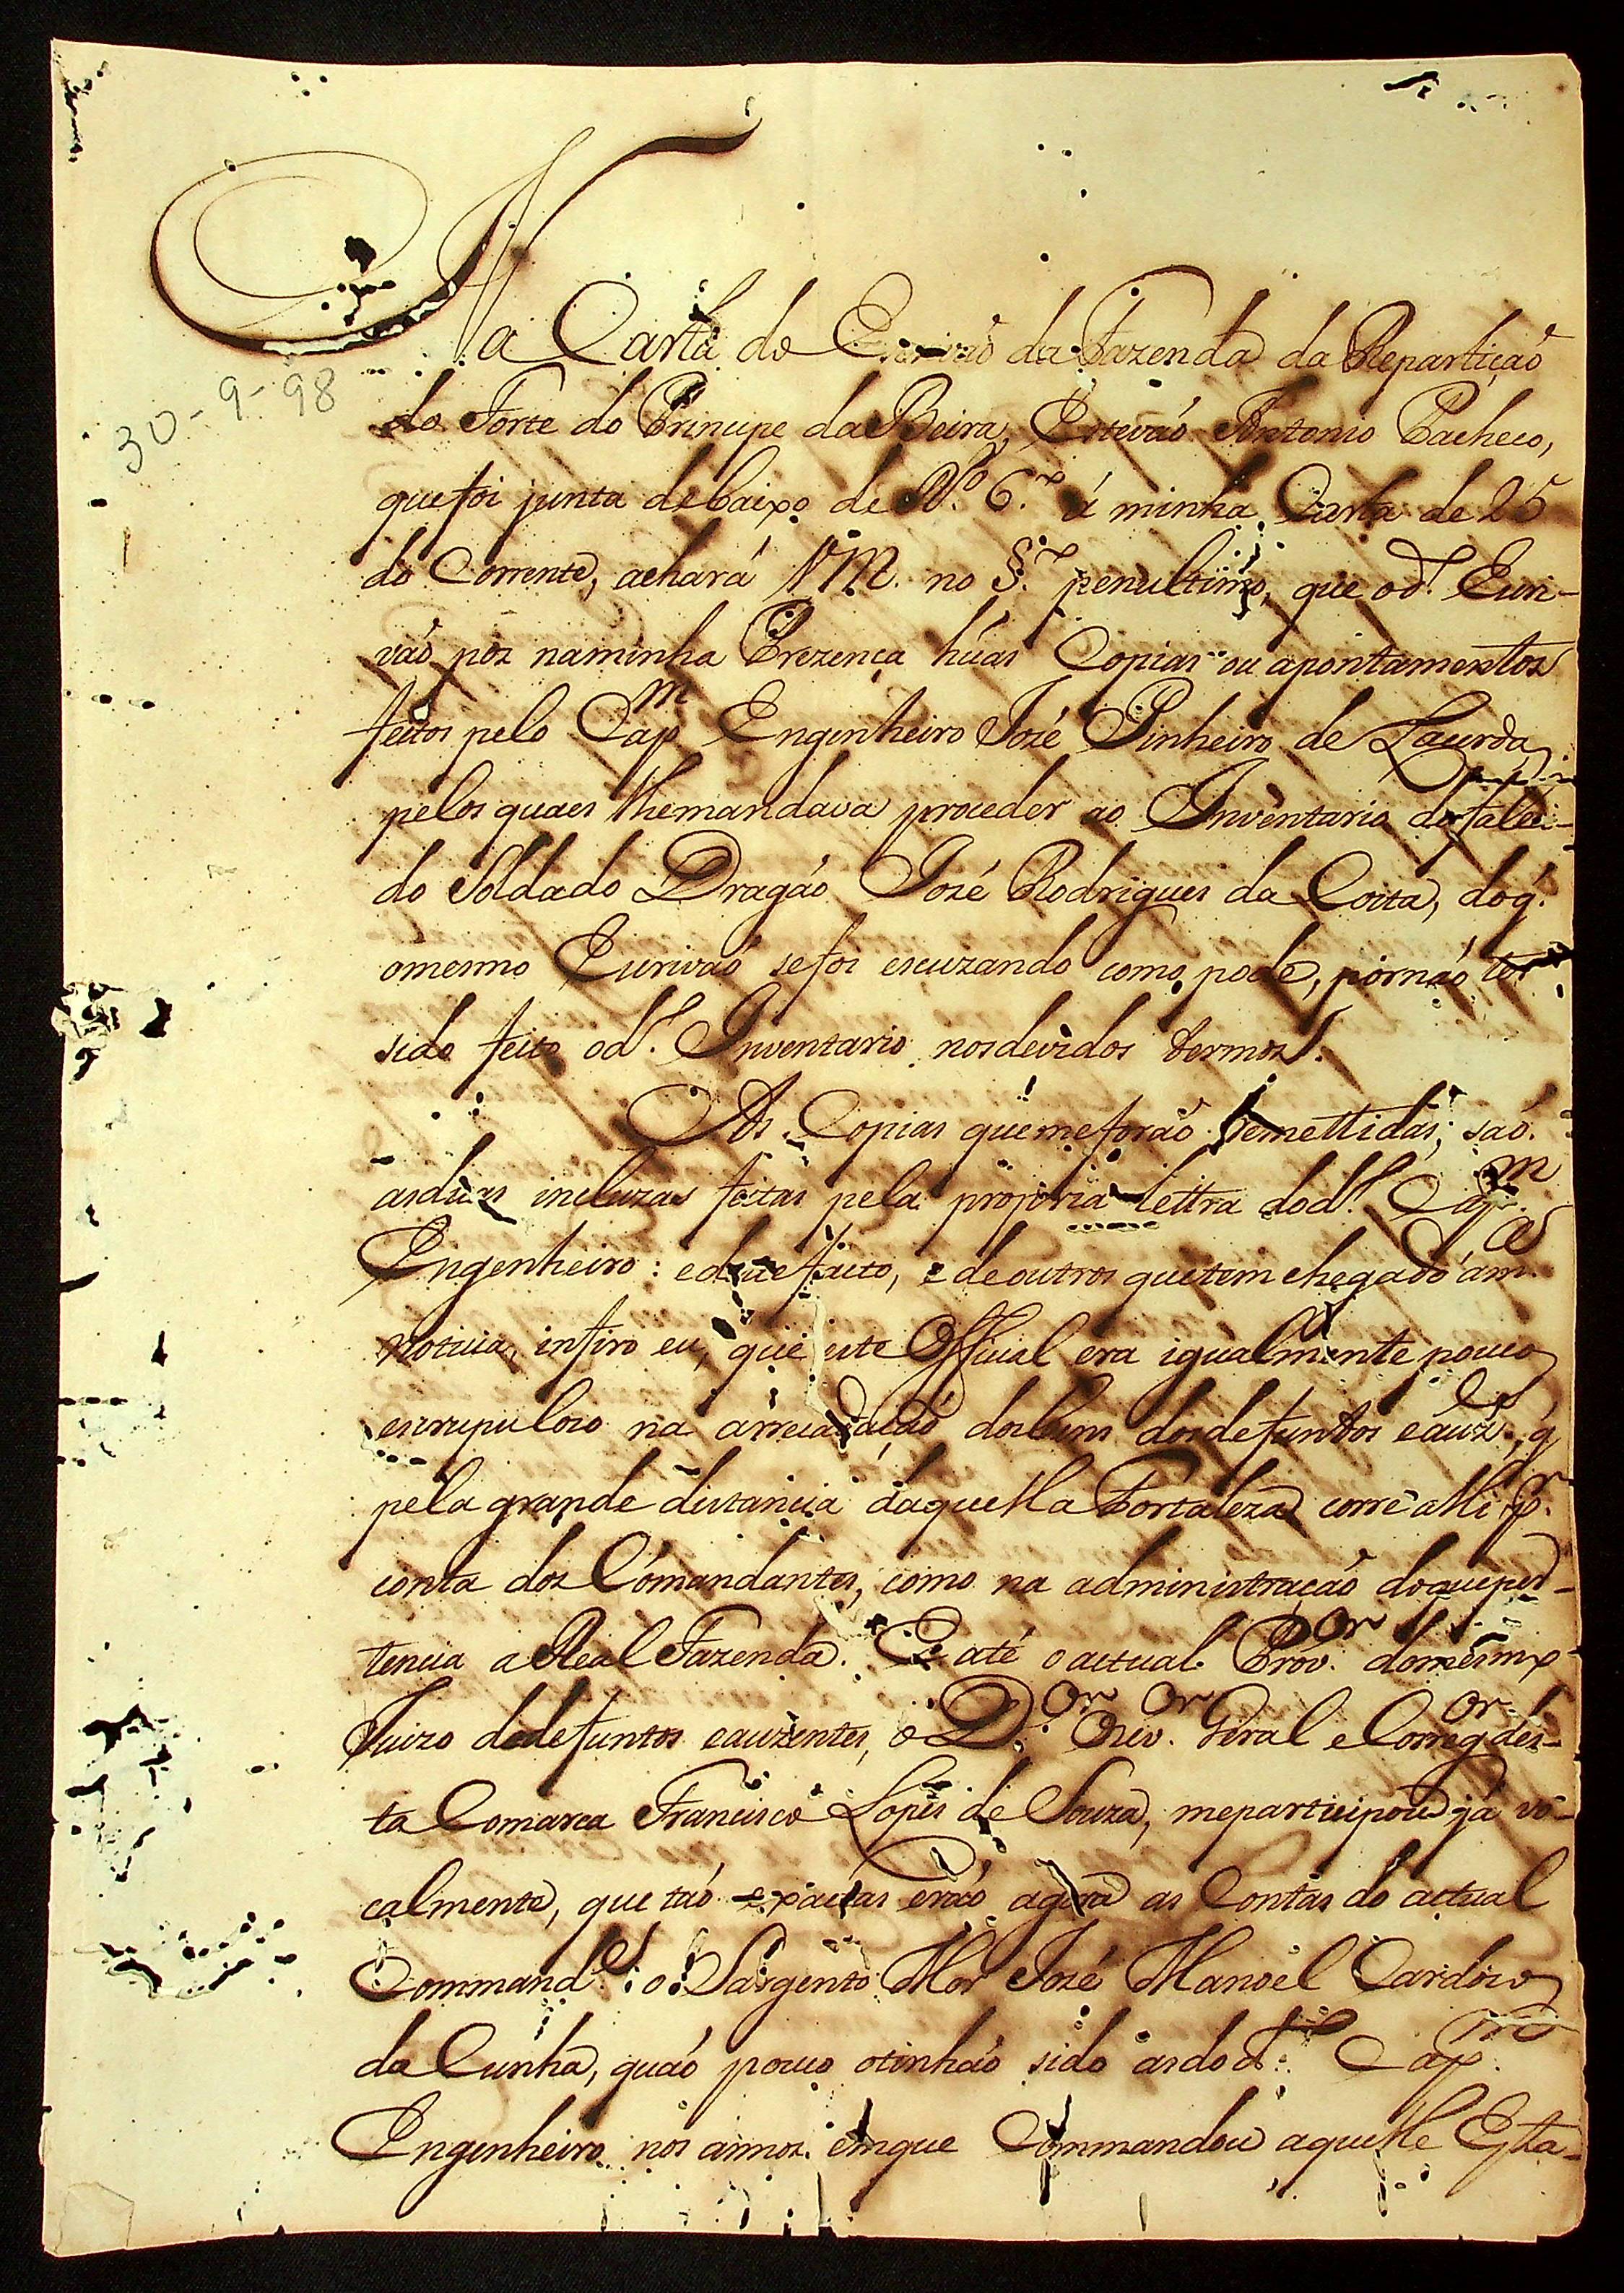 30-9-98
Na Carta do Escrivaõ da Fazenda da Repartiçaõ
do Forte do Principe da Beira, Estevaõ Antonio Pacheco,
que foi junta debaixo de N.º 6.º á minha Carta de 25
do Corrente, achará VM. no §.º penultimo, que o d.º Escri-
vaõ pôz na minha Prezença húas Copias ou apontamentos
feitos pelo Cap.m Engenheiro José Pinheiro de Lacerda,
pelos quaes lhe mandava proceder ao Inventario do faleci-
do Soldado Dragaõ José Rodrigues da Costa, do q.
o mesmo Escrivaõ se foi escuzando como pode, por naõ ter
sido feito o d.º Inventario nos devidos termos.
As Copias que me foraõ remettidas, saõ
as duas incluzas feitas pela propria lettra do d.º Cap.m
Engenheiro: e deste facto, e de outros que tem chegado á m.a
noticia, infiro eu, que este Official era igualmente pouco
escrupuloso na arrecadaçaõ dos bens dos defuntos e auz.es, q
pela grande distancia daquella Fortaleza corre alli p.r
conta dos Cómandantes, como na administraçaõ do que per-
tencia a Real Fazenda. E até o actual Prov.or do mesmo
Juizo de defuntos e auzentes, o D.or Ouv.or Geral e Correg.or des-
ta Comarca Francisco Lopes de Souza, me participou já vo-
calmente, que taõ exactas eraõ agora as Contas do actual
Command.e o Sargento Mor José Manoel Cardozo
da Cunha, quaõ pouco o tinhaõ sido as do d.º Cap.m
Engenheiro nos annos em que Commandou aquelle Esta-